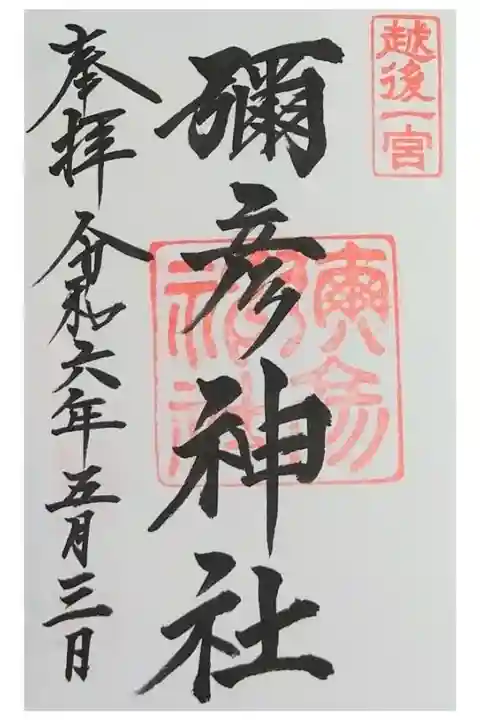 越後一宮
彌彦神社
奉拝 令和六年五月三日